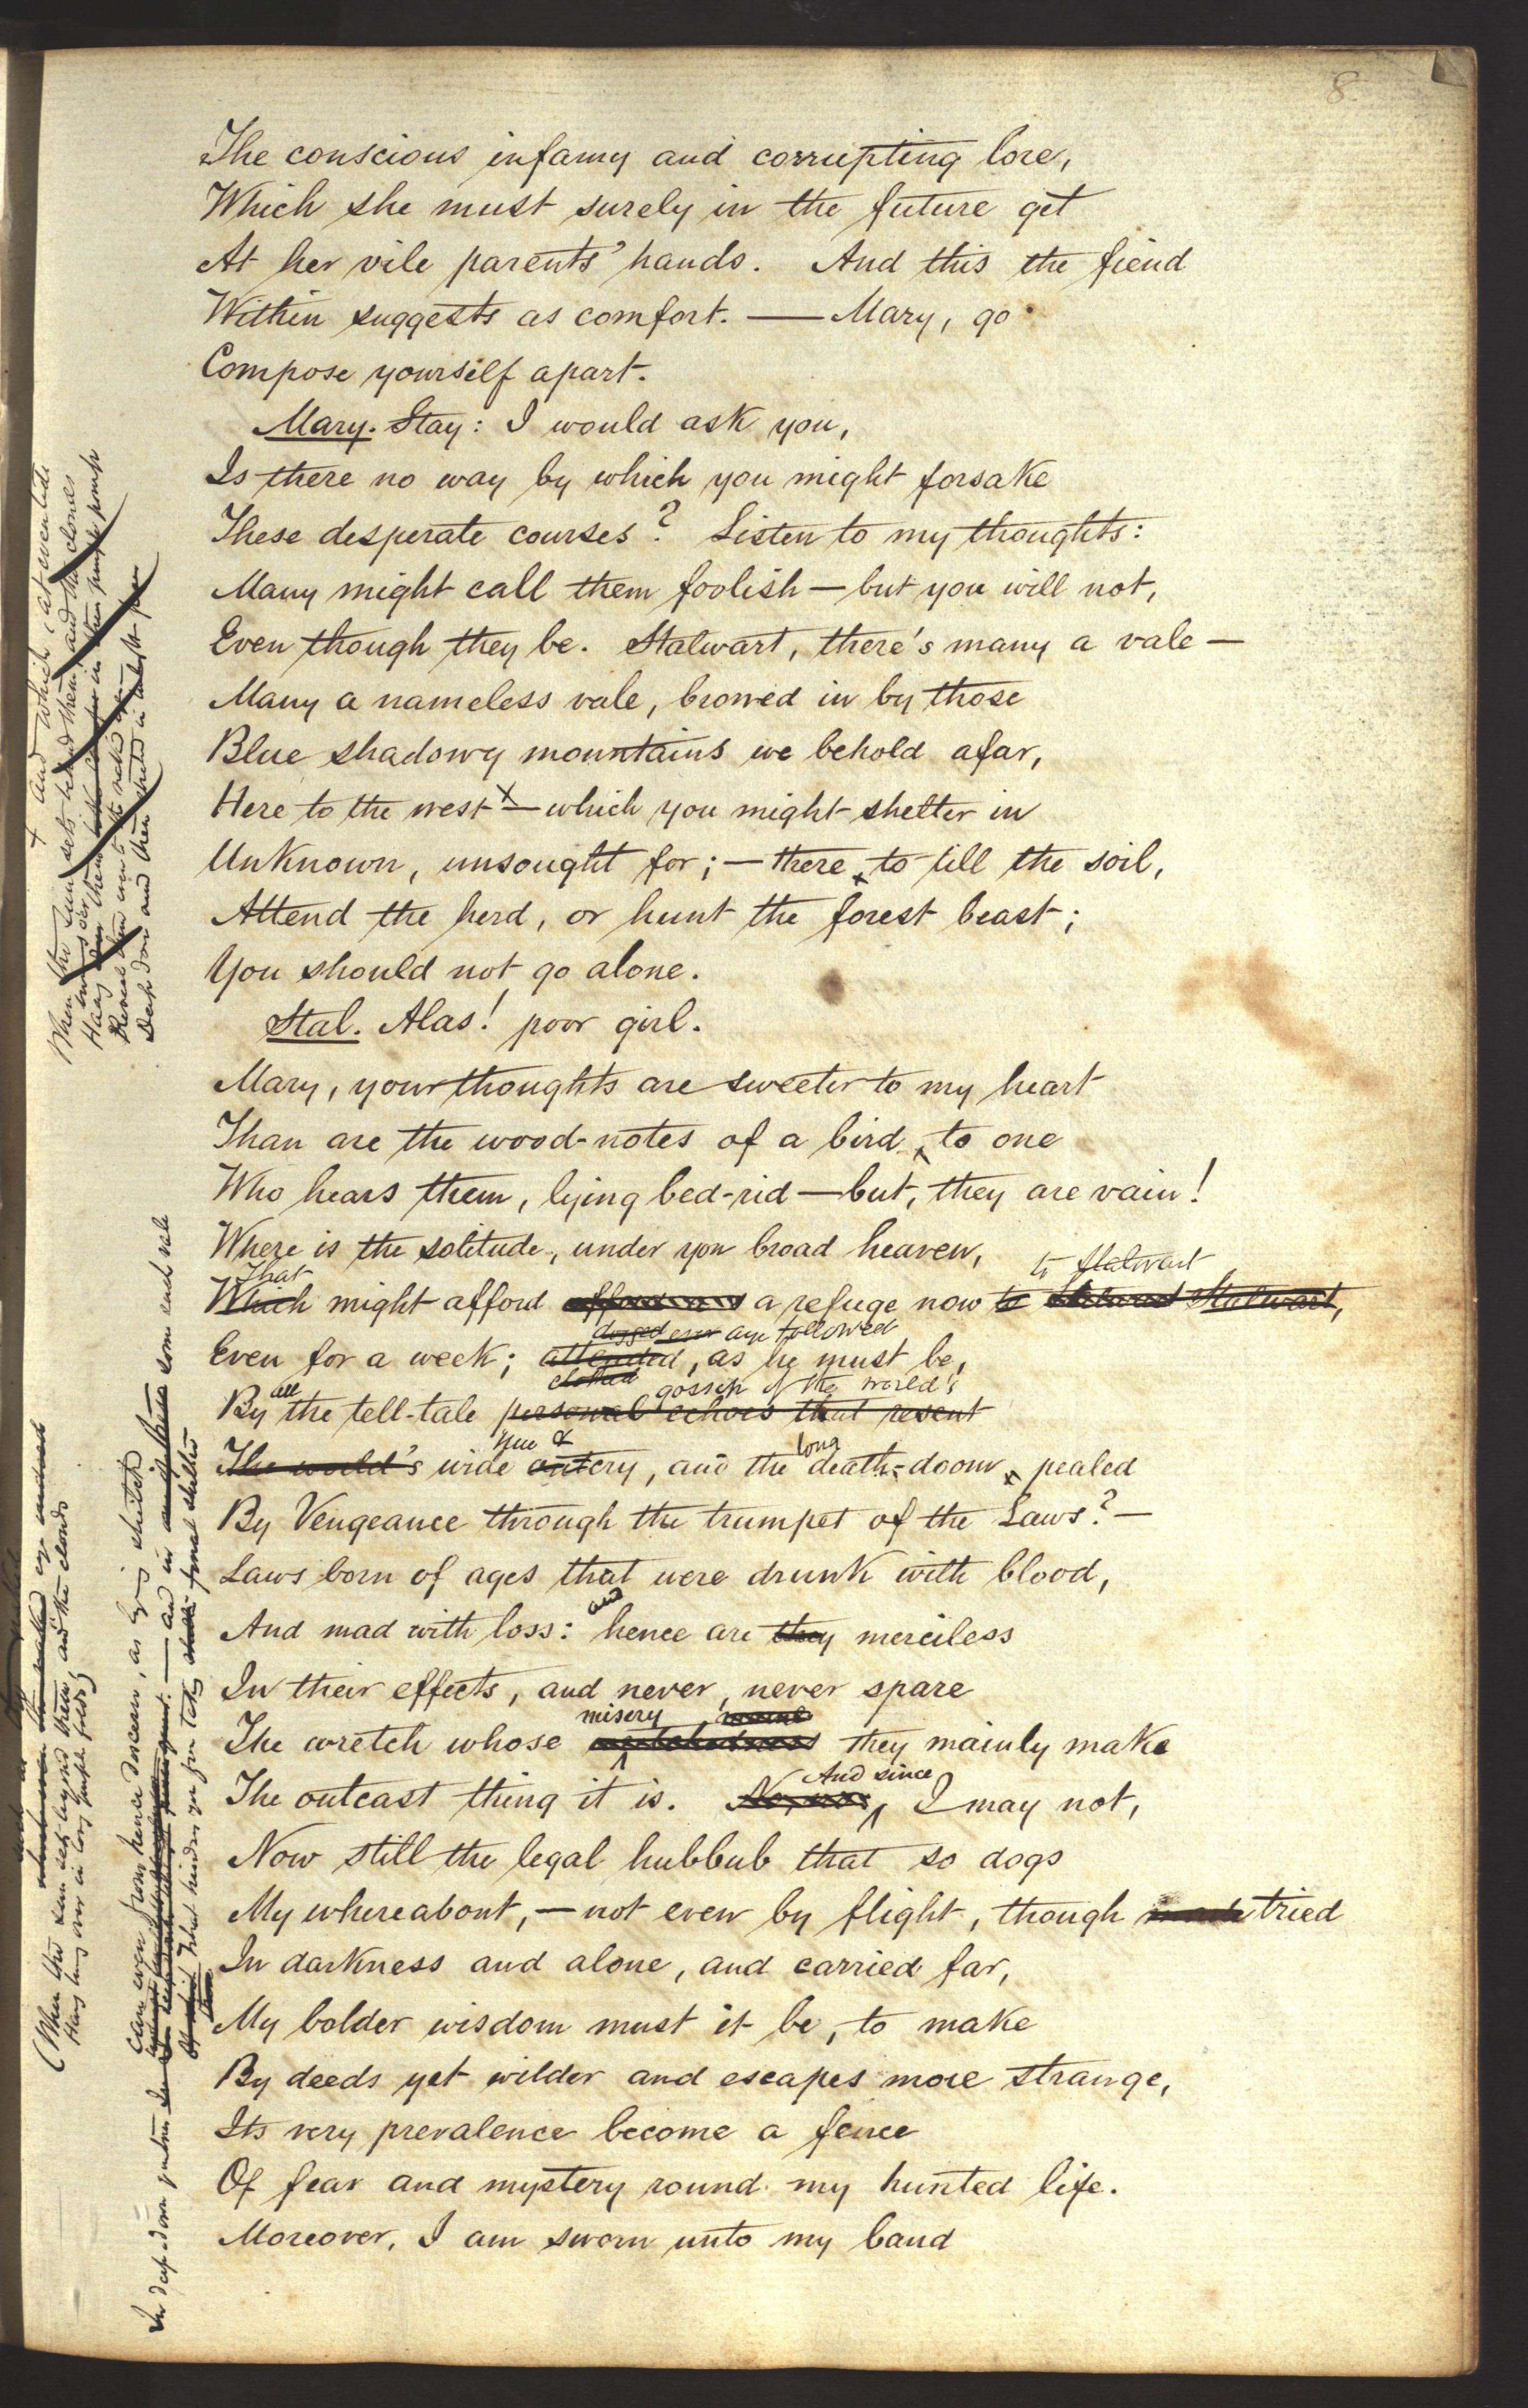 8
The conscious infamy and corrupting lore,
Which she must surely in the future get
At her vile parents' hands. And this the fiend
Within suggests as comfort. — Mary, go
Compose yourself apart.
Mary. Stay: I would ask you,
Is there no way by which you might forsake
These desperate courses? Listen to my thoughts:
Many might call them foolish — but you will not,
Even though they be. Stalwart, there's many a vale —
Many a nameless vale, browed in by those
Blue shadowy mountains we behold afar,
Here to the west x — which you might shelter in
Unknown, unsought for; — there, to till the soil,
Attend the herd, or hunt the forest beast;
You should not go alone.
Stal. Alas! poor girl.
Mary, your thoughts are sweeter to my heart
Than are the wood-notes of a bird, to one
Who hears them, lying bed-rid — but, they are vain!
Where is the solitude, under yon broad heaven,
That to Stalwart
Which might afford a refuge now to Stalwart,
dogged ever aye followed
Even for a week; attended, as he must be,
all clothed gossip of the world's
By the tell-tale personal echoes that resent
hue & long
The world's wide outcry, and the death-doom, pealed
By Vengeance through the trumpet of the Laws? —
Laws born of ages that were drunk with blood,
and
And mad with loss: hence are they merciless
In their effects, and never, never spare
misery
The wretch whose wretchedness they mainly make
And since
The outcast thing it is. I may not,
Now still the legal hubbub that so dogs
My whereabout, — not even by flight, though tried
In darkness and alone, and carried far,
My bolder wisdom must it be, to make
By deeds yet wilder and escapes more strange,
Its very prevalence become a fence
Of fear and mystery round my hunted life.
Moreover, I am sworn unto my band
x and which, at eventide
When the sun sets behind them, and the clouds
Hang over them in their purple pomp
Reveal
Deep down and then
(When the sun sets beyond them, and the clouds
Hang long over in long purple folds)
Can even from hence discern, as lying
In deep down some such vale
What hinders you from taking final shelter